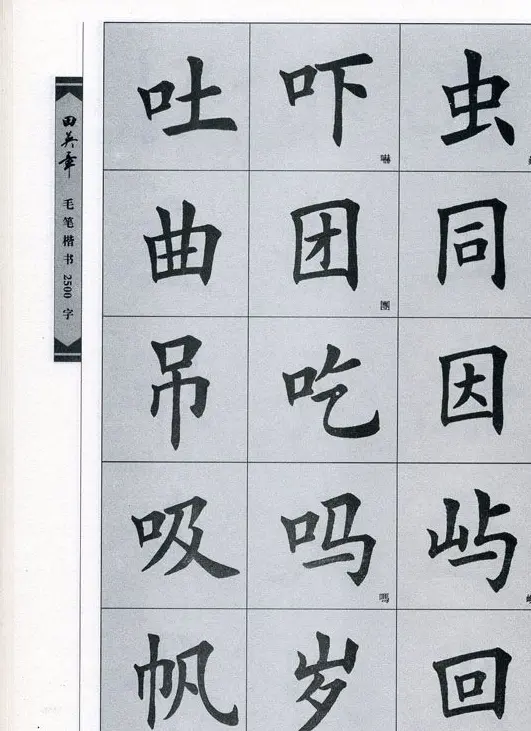 田英章
毛笔楷书2500字
吐 吓 虫
嚇
曲 团 同
團
吊 吃 因
吸 吗 屿
嗎
帆 岁 回